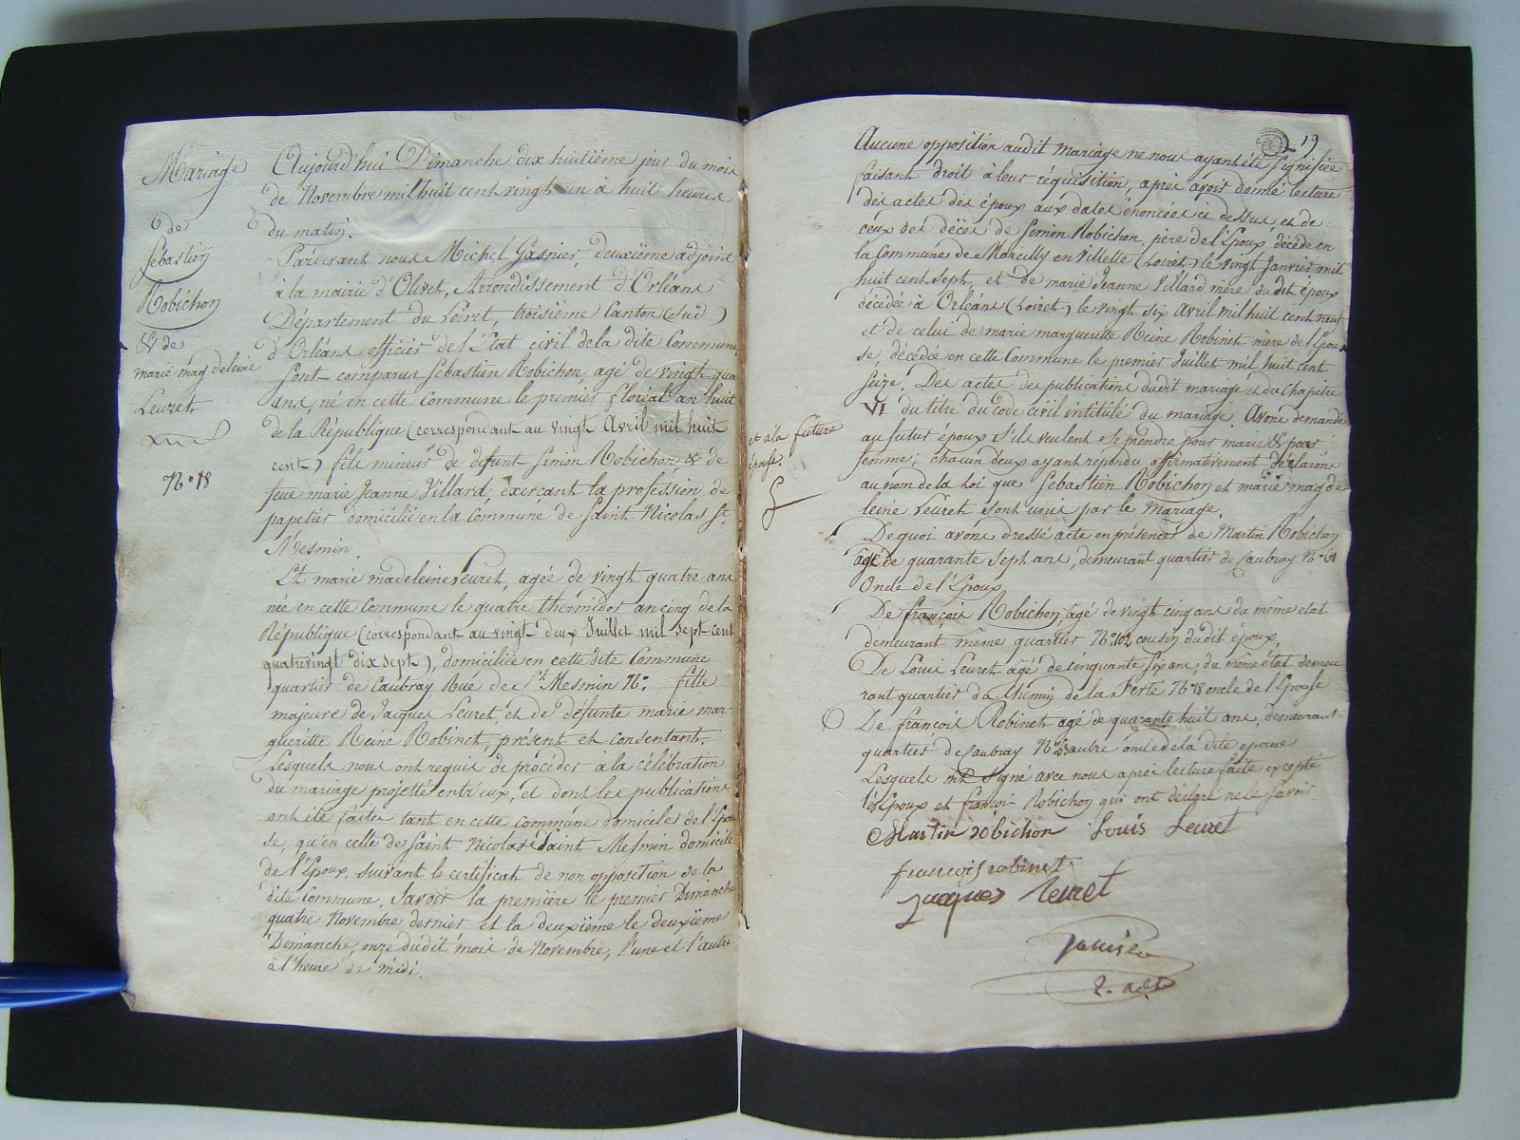 Mariage
de
Sébastien
Robichon
& de
marie magdeleine
Leuret
N.° 18
Aujourd'hui Dimanche dix huitième jour du mois
de Novembre mil huit cent vingt un à huit heures
du matin.
Pardevant nous Michel Gasnier, deuxième adjoint
à la mairie d'Olivet, Arrondissement d'Orléans
Département du Loiret, troisième Canton (Sud)
d'Orléans officier de l'État civil de la dite Commune
sont comparus Sébastien Robichon, agé de vingt
ans, né en cette Commune le premier floréal an huit
de la République (correspondant au vingt Avril mil huit
cent) fils mineur de defunt Simon Robichon & de
feue marie Jeanne Villard, exerçant la profession de
papetier domicilié en la Commune de Saint Nicolas St
Mesmin.
Et marie madeleine Leuret, agée de vingt quatre ans
née en cette Commune le quatre thermidor an cinq de la
République (correspondant au vingt deux Juillet mil sept cent
quatrevingt dix sept), domiciliée en cette dite Commune
quartier de Caubray Rue de St Mesmin N.° fille
majeure de Jacques Leuret, et de defunte marie mar-
gueritte Reine Robinet, présent et consentant.
Lesquels nous ont requis de procéder à la célébration
du mariage projetté entr'eux, et dont les publications
ont été faites tant en cette commune domicile de l'Epou-
se, qu'en celle de Saint Nicolas Saint Mesmin domicile
de l'Epoux, suivant le certificat de non opposition de la
dite Commune. Savoir la première le premier Dimanche
quatre Novembre dernier et la deuxième le deuxième
Dimanche, onze dudit mois de Novembre, l'une et l'autre
à l'heure de midi.
19
Aucune opposition audit mariage ne nous ayant été signifiée
faisant droit à leur réquisition, après avoir donné lecture
des actes des époux aux dates énoncées ci dessus, et de
ceux des décès de Simon Robichon, père de l'Epoux, décédé en
la Commune de Marcilly en Villette (Loiret) le vingt Janvier mil
huit cent sept, et de marie Jeanne Villard mère du dit époux
décédée à Orléans (Loiret) le vingt six Avril mil huit cent neuf
et de celui de marie margueritte Reine Robinet mère de l'Epou-
se, décédée en cette Commune le premier Juillet mil huit cent
seize. Des actes des publications dudit mariage et du Chapitre
VI du titre du code civil intitulé du mariage. Avons demandé
et à la future
épouse.
au futur époux s'ils veulent se prendre pour mari & pour
femme; chacun d'eux ayant répondu affirmativement déclarons
au nom de la Loi que Sébastien Robichon et marie magde-
leine Leuret sont unis par le Mariage.
De quoi avons dressé acte en présence de Martin Robichon
âgé de quarante sept ans, demeurant quartier de Caubray N.°
Oncle de l'Epoux
De françois Robichon, agé de vingt cinq ans du même etat
demeurant même quartier N.° 102 cousin du dit époux,
De Louis Leuret agé de cinquante six ans, du même état demeu-
rant quartier du Chemin de la Ferté N.° 18 oncle de l'Epouse
De françois Robinet agé de quarante huit ans, demeurant
quartier de Caubray N.° autre oncle de la dite epouse
Lesquels ont signé avec nous après lecture faite excepté
les Epoux et françois Robichon qui ont déclaré ne le savoir
Martin robichon Louis Leuret
francois robinet
jacques leuret
Gasnier
2. adt